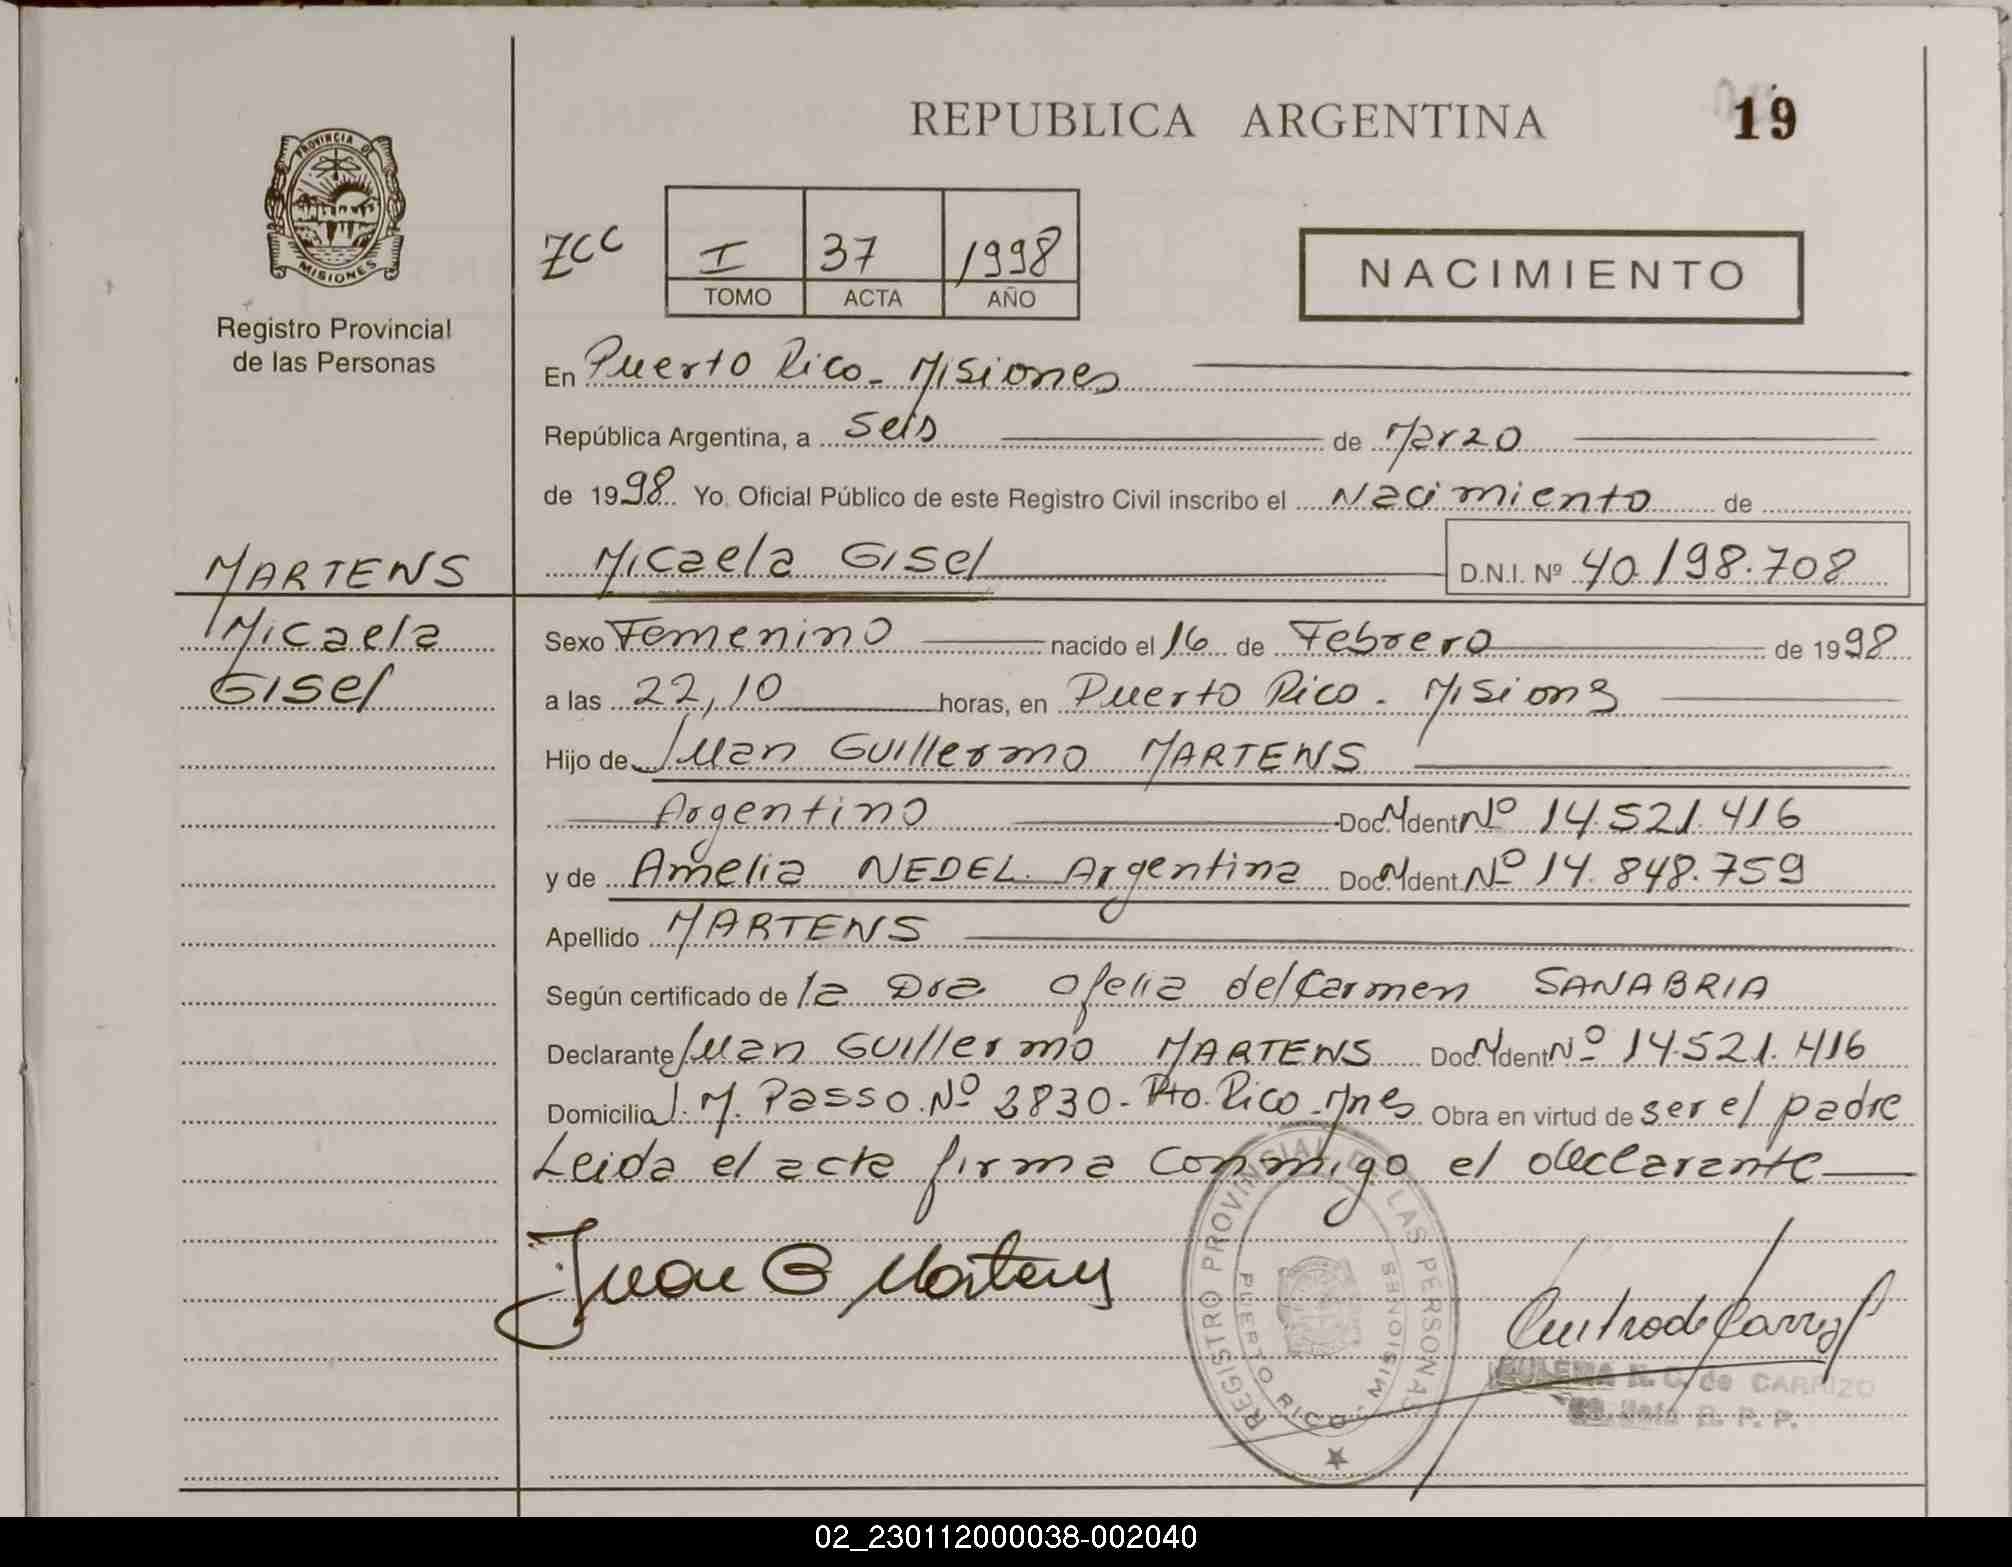 REPUBLICA ARGENTINA
19
PROVINCIA DE
MISIONES
Registro Provincial
de las Personas
ZCC
I 37 1998
TOMO ACTA AÑO
NACIMIENTO
En Puerto Rico - Misiones
República Argentina, a seis de Marzo
de 1998 Yo, Oficial Público de este Registro Civil inscribo el Nacimiento de
MARTENS
Micaela Gisel
D.N.I. Nº 40.198.708
Micaela
Gisel
Sexo Femenino nacido el 16 de Febrero de 1998
a las 22,10 horas, en Puerto Rico - Misiones
Hijo de Juan Guillermo MARTENS
Argentino Doc. Ident Nº 14.521.416
y de Amelia NEDEL. Argentina Doc. Ident. Nº 14.848.759
Apellido MARTENS
Según certificado de la Dra Ofelia del Carmen SANABRIA
Declarante Juan Guillermo MARTENS Doc. Ident Nº 14.521.416
Domicilio J. M. Passo. Nº 3830 - Pto. Rico - Mnes Obra en virtud de ser el padre
Leida el acta firma conmigo el declarante
Juan G Martens
REGISTRO PROVINCIAL DE LAS PERSONAS
PUERTO RICO - MISIONES
N. C. de CARRIZO
R. P. P.
02_230112000038-002040